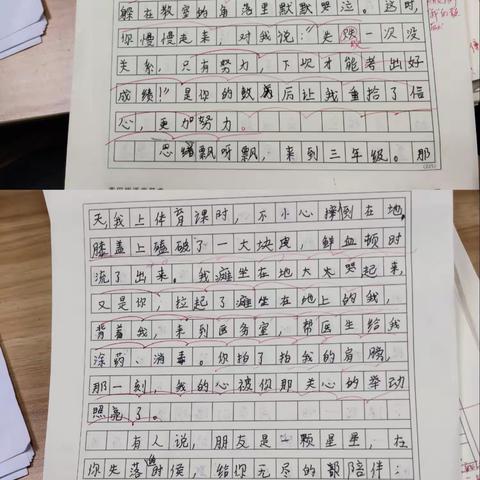 躲在教室的角落里默默哭泣。这时,
你慢慢走来,对我说:"失败一次没
关系,只有努力,下次才能考出好
成绩!"是你的鼓励后让我重拾了信
心,更加努力。
思绪飘呀飘,来到三年级。那
天,我上体育课时,不小心摔倒在地,
膝盖上磕破了一大块皮,鲜血顿时
流了出来。我瘫坐在地大大哭起来,
又是你,拉起了瘫坐在地上的我,
背着我,来到医务室,帮医生给我
涂药、消毒。你拍了拍我的肩膀,
那一刻,我的心被你那关心的举动
照亮了。
有人说,朋友是一颗星星,在
你失落的时侯,给你无尽的陪伴;